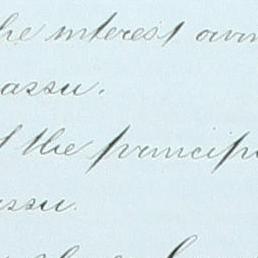 the interest own
assu.
the principa
assu.